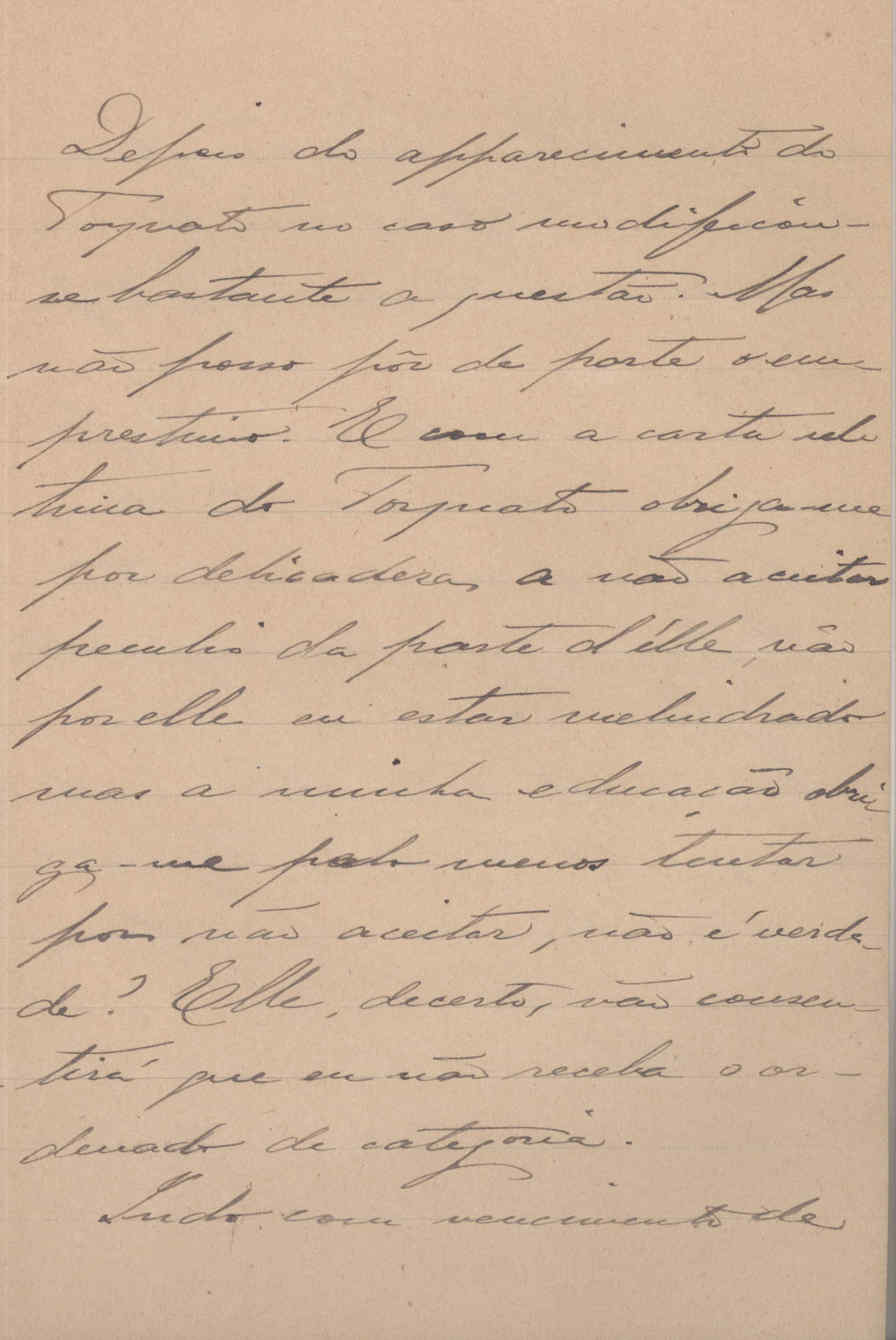 Depois do apparecimento do
Torquato no caso modificou-
se bastante a questão. Mas
não posso pôr de parte o em
prestimo. E com a carta ul
tima do Torquato obriga-me
por delicadeza, a não aceitar
peculio da parte d'élle, não
por elle eu estar melindrado
mas a minha educacão obri
ga-me pelo menos tentar
por não aceitar, não é verda-
de? Elle, decerto, não consen-
tirá que eu não receba o or-
denado de categoria.
Indo com vencimento de